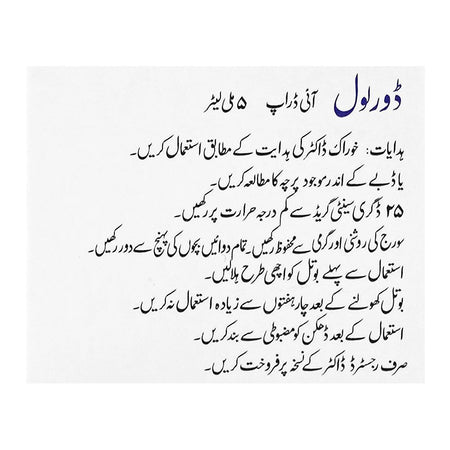 ڈورلول آئی ڈراپ ۵ ملی لیٹر
ہدایات: خوراک ڈاکٹر کی ہدایت کے مطابق استعمال کریں۔
یا ڈبے کے اندر موجود پرچہ کا مطالعہ کریں۔
۲۵ ڈگری سینٹی گریڈ سے کم درجہ حرارت پر رکھیں۔
سورج کی روشنی اور گرمی سے محفوظ رکھیں۔ تمام دوائیں بچوں کی پہنچ سے دور رکھیں۔
استعمال سے پہلے بوتل کو اچھی طرح ہلائیں۔
بوتل کھولنے کے بعد چار ہفتوں سے زیادہ استعمال نہ کریں۔
استعمال کے بعد ڈھکن کو مضبوطی سے بند کریں۔
صرف رجسٹرڈ ڈاکٹر کے نسخہ پر فروخت کریں۔